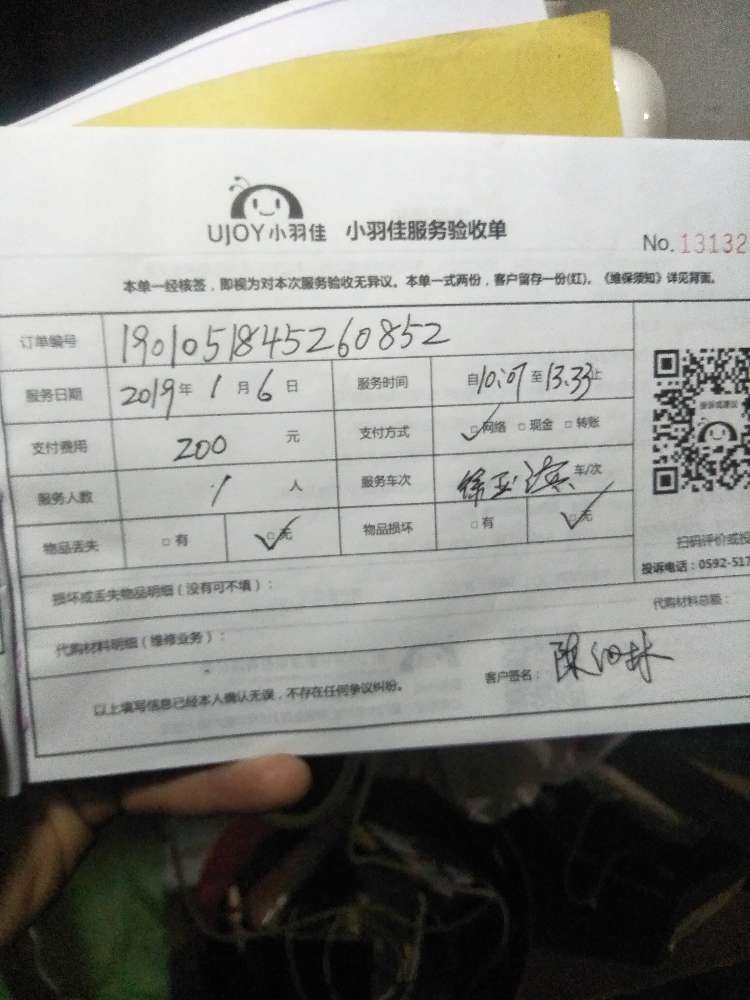 UJOY小羽佳 小羽佳服务验收单
No.13132
本单一经核签，即视为对本次服务验收无异议。本单一式两份，客户留存一份(红)。《维保须知》详见背面。
订单编号 1901051845260852
服务日期 2019年1月6日 服务时间 自10:07至13:33止
支付费用 200 元 支付方式 ☑网络 □现金 □转账
服务人数 1 人 服务车次 徐玉 车/次
物品丢失 □有 ☑无 物品损坏 □有 ☑无
扫码评价或投
投诉电话：0592-517
损坏或丢失物品明细（没有可不填）：
代购材料明细（维修业务）： 代购材料总额：
以上填写信息已经本人确认无误，不存在任何争议纠纷。 客户签名：陈